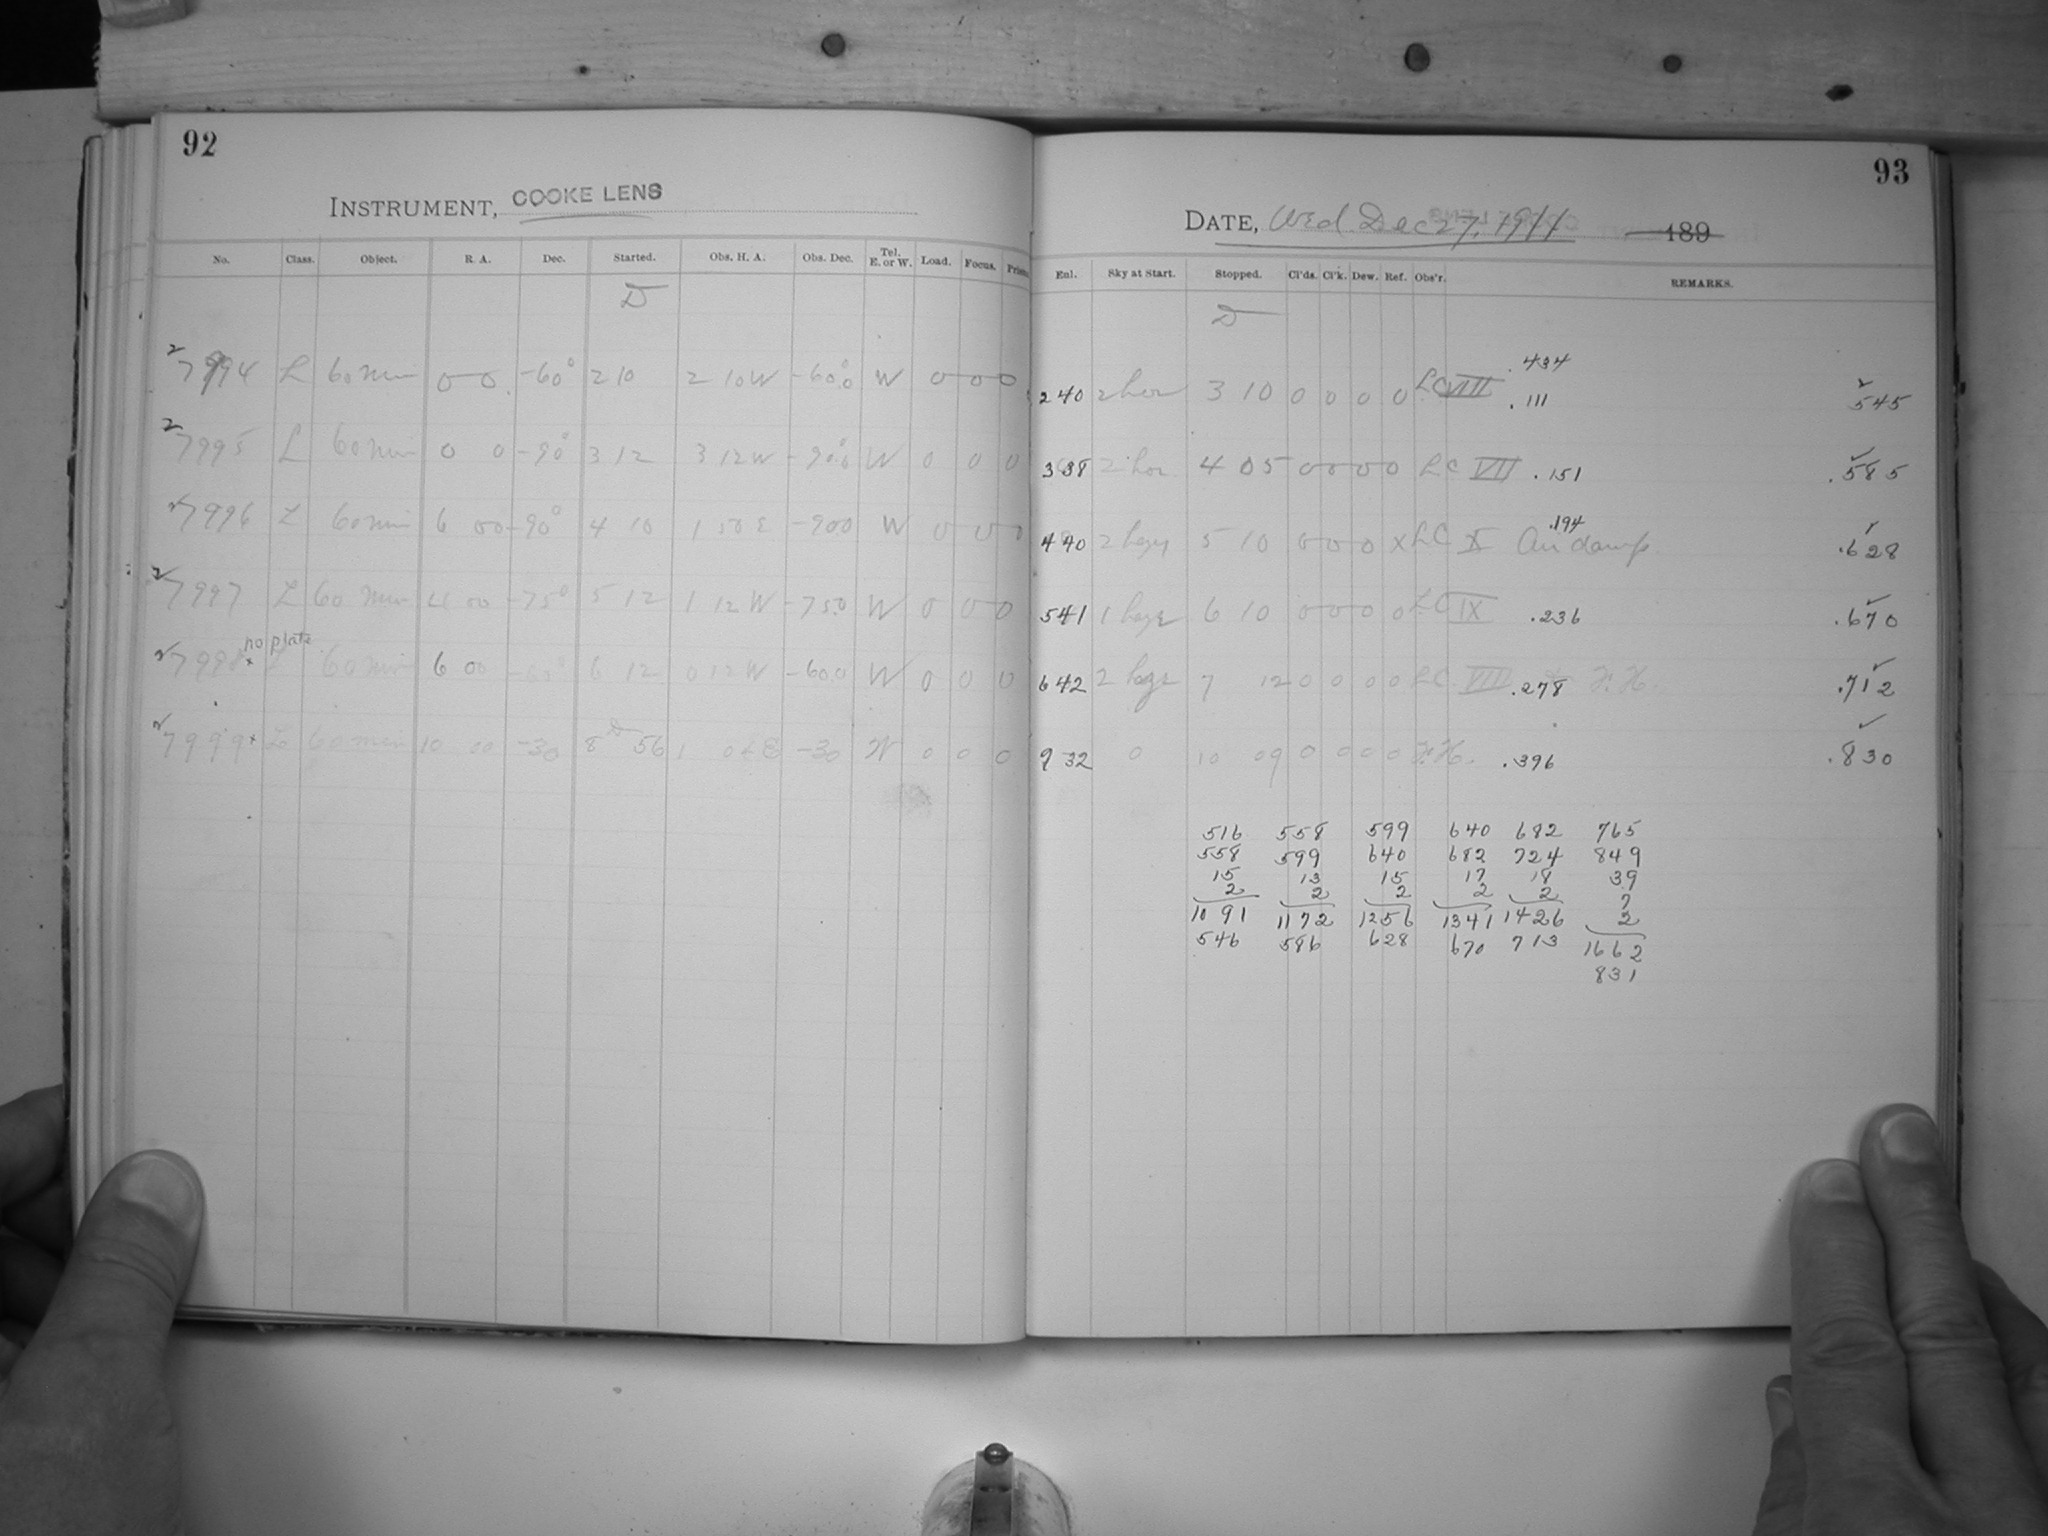 92
INSTRUMENT, COOKE LENS
No. Class. Object. R. A. Dec. Started. Obs. H. A. Obs. Dec. Tel. E. or W. Load. Focus.
7994 L 60 min 0 0 -60° 2 10 2 10 W -60.0 W 0 0 0
7995 L 60 min 0 0 -90° 3 12 3 12 W -90.0 W 0 0 0
7996 L 60 min 6 00 -90° 4 10 1 50 E -900 W 0 0 0
7997 L 60 min 4 00 -75° 5 12 1 12 W -75.0 W 0 0 0
no plate
7998 x L 60 min 6 00 -60° 6 12 0 12 W -60.0 W 0 0 0
7999 x L 60 min 10 00 -30 8 56 1 04 E -30 W 0 0 0
93
DATE, Wed. Dec 27, 1911 189
Enl. Sky at Start. Stopped. Cl'ds. Cl'k. Dew. Ref. Obs'r. REMARKS.
.434
240 2 hor 3 10 0 0 0 0 LC VIII .111 545
338 2 hor 4 05 0 0 0 0 LC VII .151 .585
.194
440 2 hazy 5 10 0 0 0 X LC X Air damp .628
541 1 haze 6 10 0 0 0 0 LC IX .236 .670
642 2 haze 7 12 0 0 0 0 LC VIII .278 F. H. .712
932 0 10 09 0 0 0 0 F. H. .396 .830
516 558 599 640 682 765
558 599 640 682 724 849
15 13 15 17 18 39
2 2 2 2 2 7
1091 1172 1256 1341 1426 2
546 586 628 670 713 1662
831